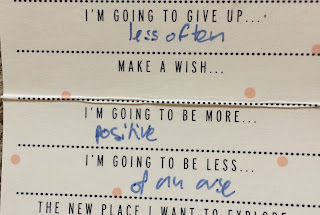 I'M GOING TO GIVE UP...
less often
MAKE A WISH...
I'M GOING TO BE MORE...
positive
I'M GOING TO BE LESS...
of an arse
THE NEW PLACE I WANT TO EXPLORE